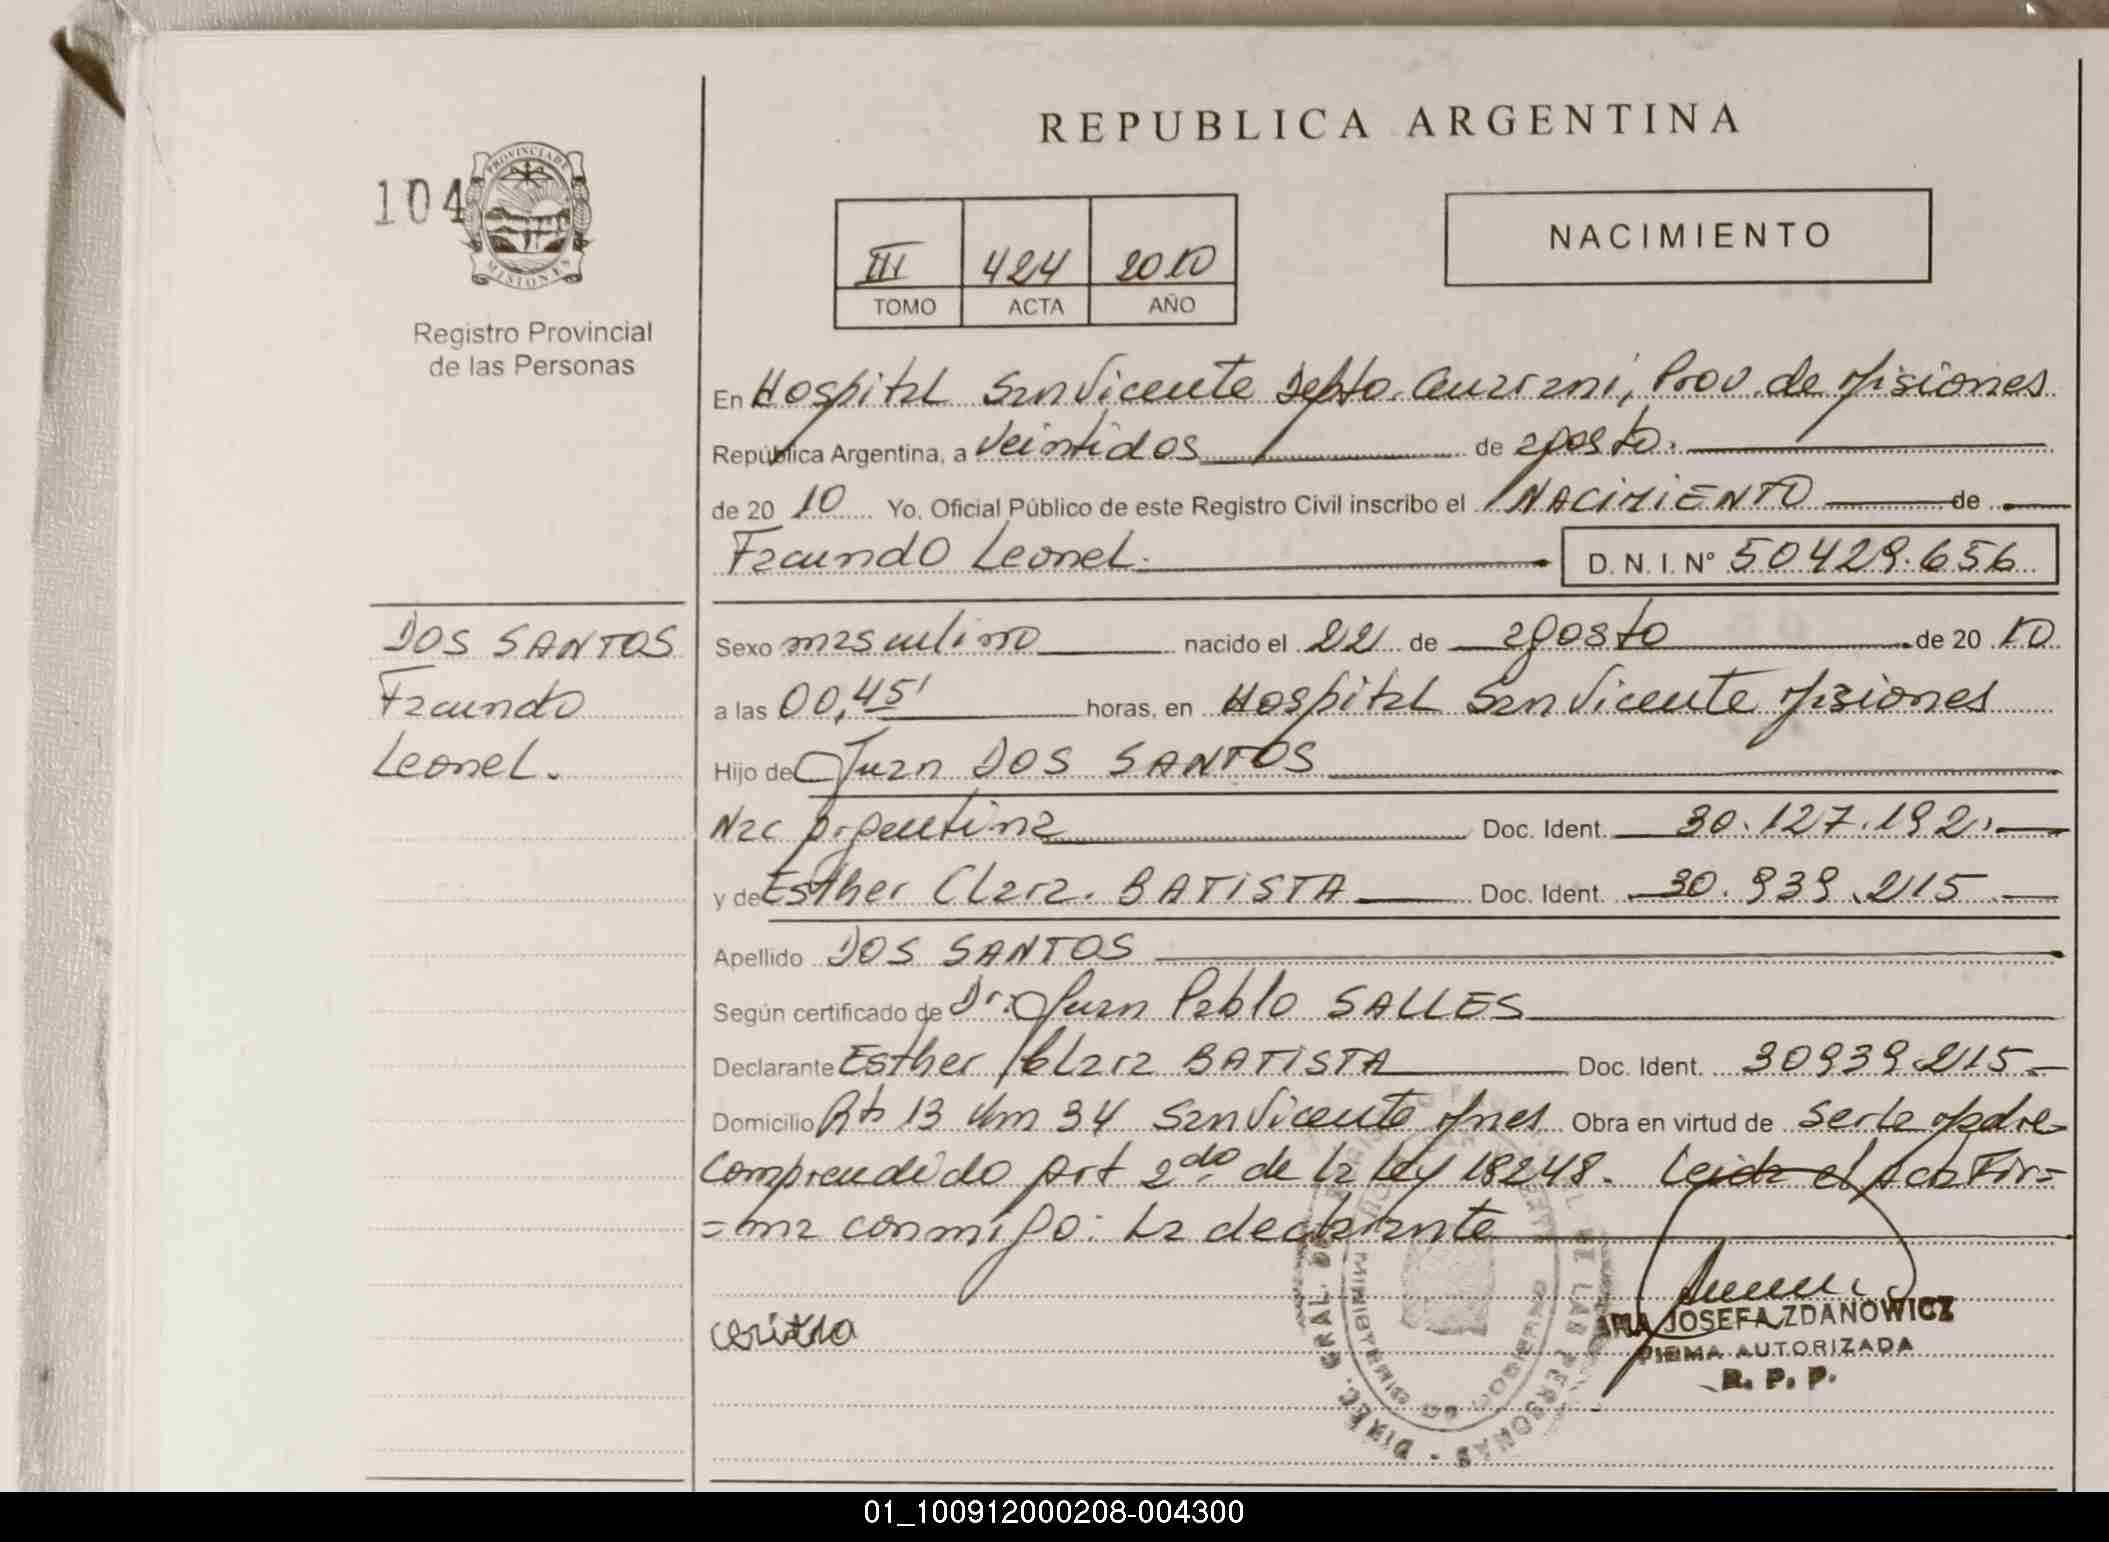 REPUBLICA ARGENTINA
104
PROVINCIA DE
MISIONES
Registro Provincial
de las Personas
III 424 2010
TOMO ACTA AÑO
NACIMIENTO
En Hospital San Vicente Depto. Guarani, Prov. de Misiones
República Argentina, a Veintidos de agosto.
de 20 10 Yo, Oficial Público de este Registro Civil inscribo el NACIMIENTO de
Facundo Leonel. D. N. I. N° 50429.656
DOS SANTOS
Facundo
Leonel.
Sexo masculino nacido el 22 de agosto de 20 10
a las 00,45' horas, en Hospital San Vicente Misiones
Hijo de Juan DOS SANTOS
Nac Argentina Doc. Ident. 30.127.192.
y de Esther Clara. BATISTA Doc. Ident. 30.939.215
Apellido DOS SANTOS
Según certificado de Dr. Juan Pablo SALLES
Declarante Esther Clara BATISTA Doc. Ident. 30939215
Domicilio Rta 13 Km 34 San Vicente Mnes Obra en virtud de ser la Madre
Comprendido Art 2do de la Ley 18248. Leida el Acta Fir=
=ma conmigo: La declarante
JOSEFA ZDANOWICZ
FIRMA AUTORIZADA
R. P. P.
DIREC. GRAL. DE LAS PERSONAS
01_100912000208-004300